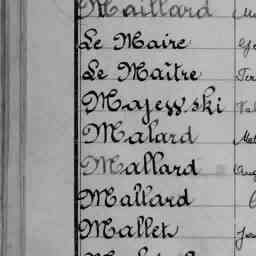 Maillard
Le Maire
Le Maître
Majewski
Malard
Mallard
Mallard
Mallet